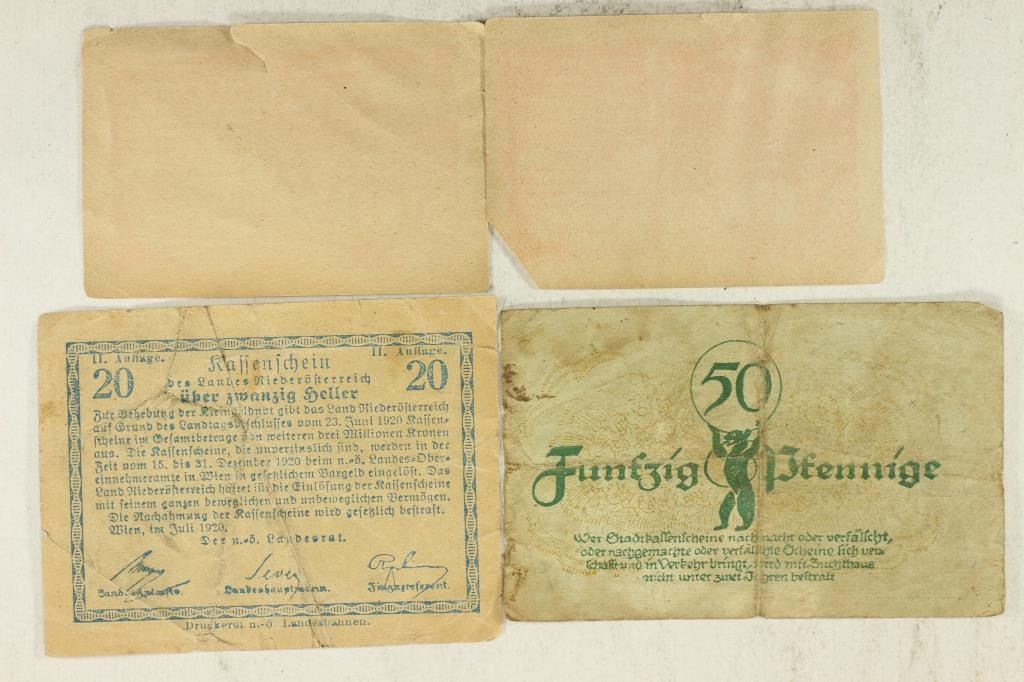 II. Auflage. Kassenschein II. Auflage.
20 des Landes Niederösterreich 20
über zwanzig Heller
Zur Behebung der Kleingeldnot gibt das Land Niederösterreich
auf Grund des Landtagsbeschlusses vom 23. Juni 1920 Kassen-
scheine im Gesamtbetrage von weiteren drei Millionen Kronen
aus. Die Kassenscheine, die unverzinslich sind, werden in der
Zeit vom 15. bis 31. Dezember 1920 beim n.-ö. Landes-Ober-
einnehmeramte in Wien in gesetzlichem Bargeld eingelöst. Das
Land Niederösterreich haftet für die Einlösung der Kassenscheine
mit seinem ganzen beweglichen und unbeweglichen Vermögen.
Die Nachahmung der Kassenscheine wird gesetzlich bestraft.
Wien, im Juli 1920.
Der n.-ö. Landesrat.
Sever
Landeshauptmann. Finanzreferent.
Druckerei n.-ö Landesbahnen.
50
Funfzig Pfennige
Wer Stadtkassenscheine nachmacht oder verfälscht,
oder nachgemachte oder verfälschte Scheine sich ver-
schafft und in Verkehr bringt, wird mit Zuchthaus
nicht unter zwei Jahren bestraft